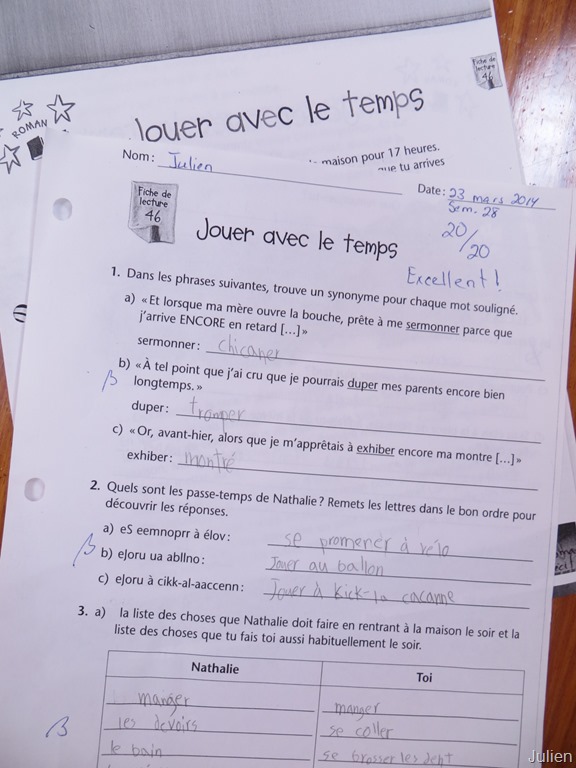 Fiche de
lecture
46
ROMAN
Jouer avec le temps
maison pour 17 heures.
que tu arrives
Nom: Julien
Date: 23 mars 2014
Sem. 28
Fiche de
lecture
46
20/20
Jouer avec le temps
Excellent!
1. Dans les phrases suivantes, trouve un synonyme pour chaque mot souligné.
a) «Et lorsque ma mère ouvre la bouche, prête à me sermonner parce que
j'arrive ENCORE en retard [...]»
sermonner: chicaner
b) «À tel point que j'ai cru que je pourrais duper mes parents encore bien
longtemps.»
duper: tromper
c) «Or, avant-hier, alors que je m'apprêtais à exhiber encore ma montre [...]»
exhiber: montré
2. Quels sont les passe-temps de Nathalie? Remets les lettres dans le bon ordre pour
découvrir les réponses.
a) eS eemnoprr à élov: se promener à vélo
b) eJoru au abllno: Jouer au ballon
c) eJoru à cikk-al-aaccenn: Jouer à kick-la cacanne
3. a) la liste des choses que Nathalie doit faire en rentrant à la maison le soir et la
liste des choses que tu fais toi aussi habituellement le soir.
Nathalie Toi
manger manger
les devoirs se coller
le bain se brosser les dent
Julien